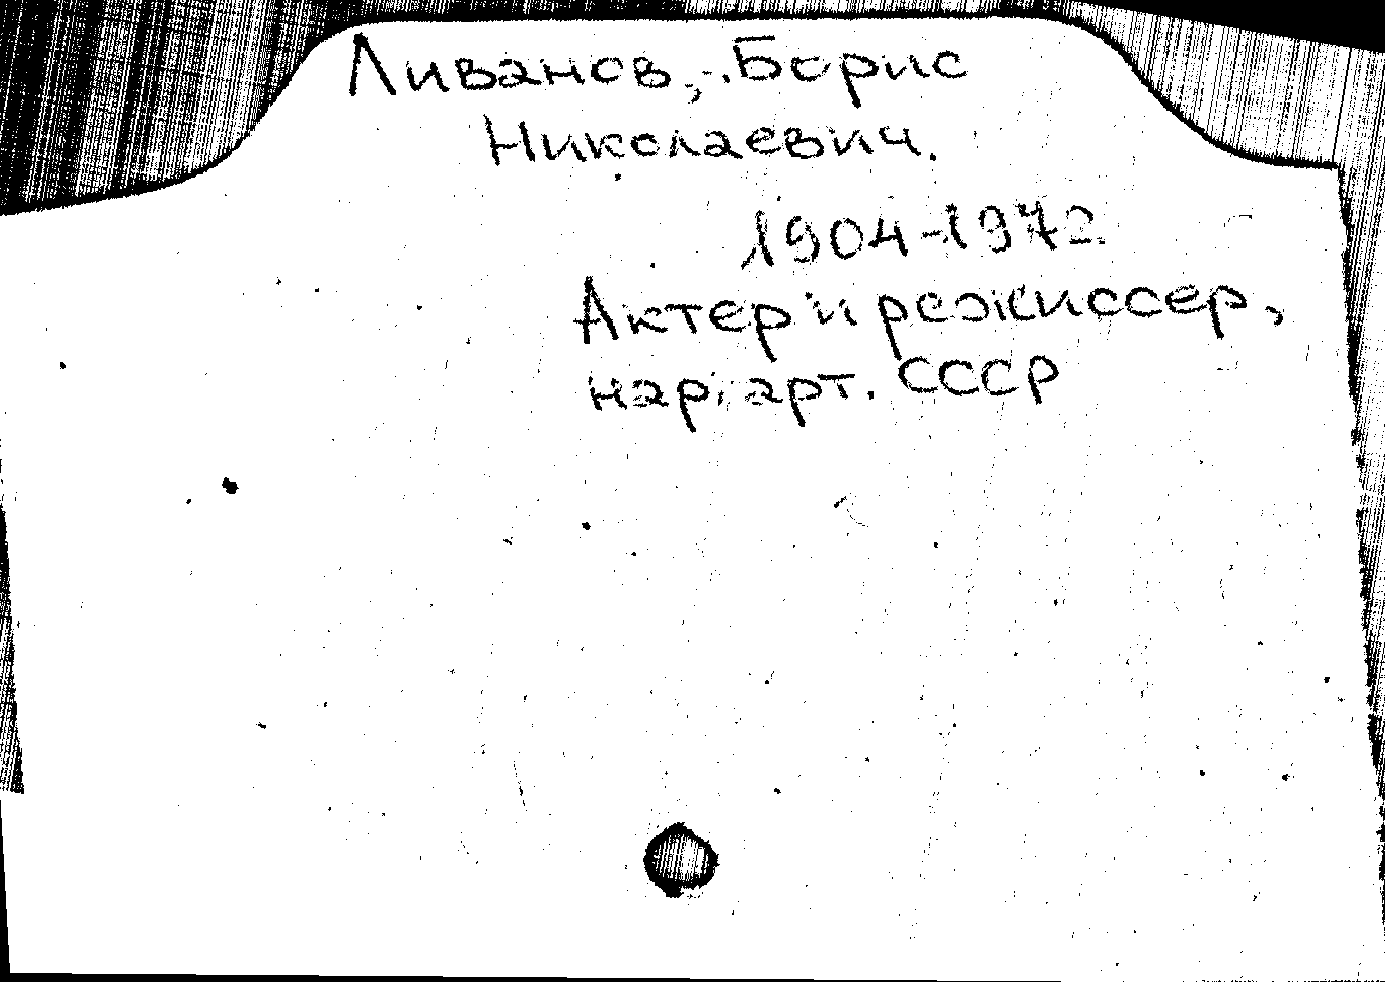 Ливанов, Борис
Николаевич.
1904-1972
Актер и режиссер,
нар. арт. СССР